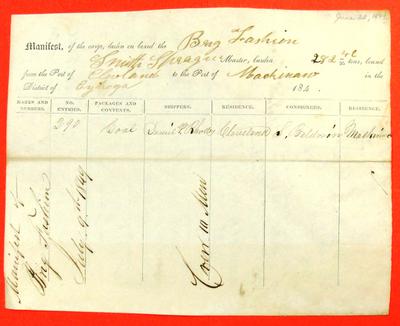 Manifest, of the cargo, laden on board the Brig Fashion
Smith Sprague Master, burden 282 42/95 tons, bound
from the Port of Cleveland to the Port of Mackinaw in the
District of Cuyhoga 184 .
MARKS AND NUMBERS. NO. ENTRIES. PACKAGES AND CONTENTS. SHIPPERS. RESIDENCE. CONSIGNEES. RESIDENCE.
290 Coal Daniel P Rhodes Cleveland Baldwin Mackinac
Manifest of
Brig Fashion
July 9th 1849